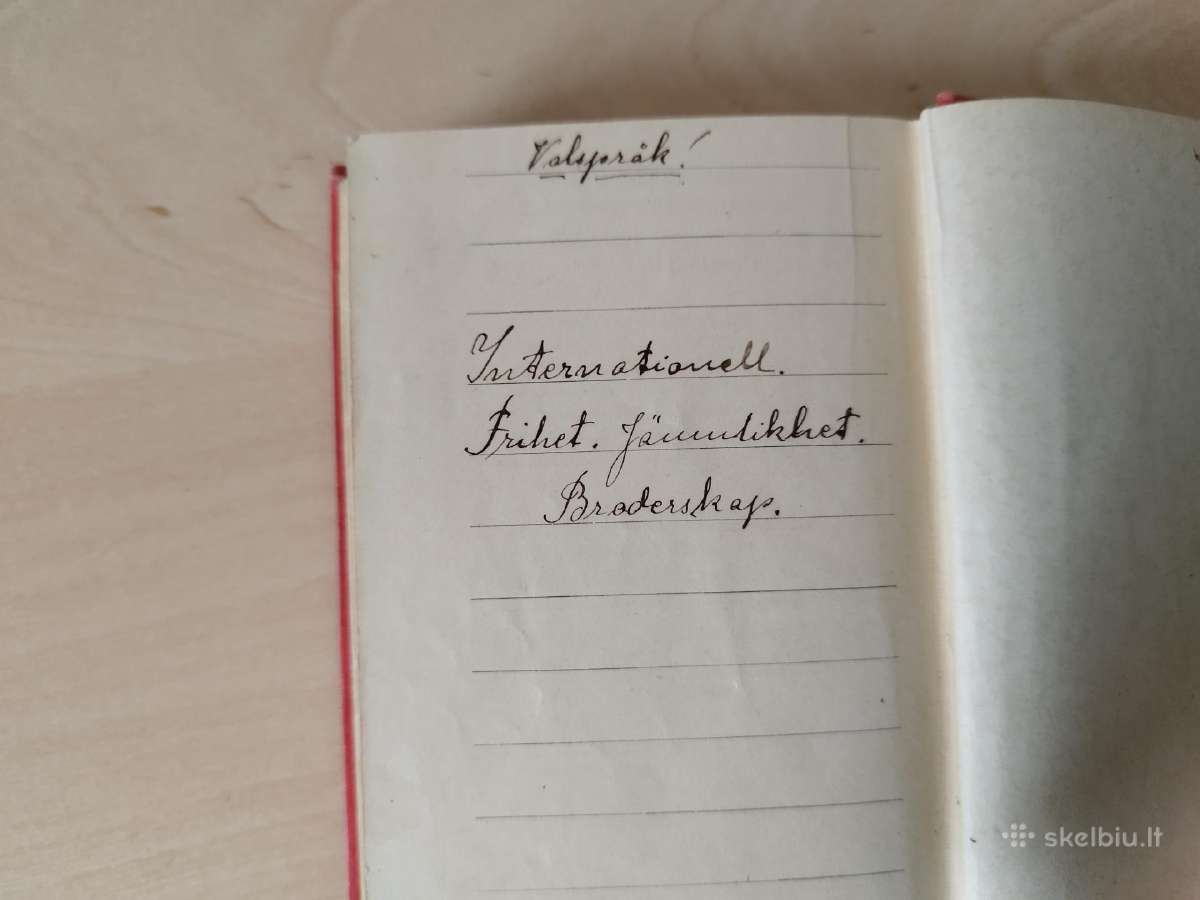 Valspråk!
Internationell.
Frihet. Jämnlikhet.
Broderskap.
skelbiu.lt